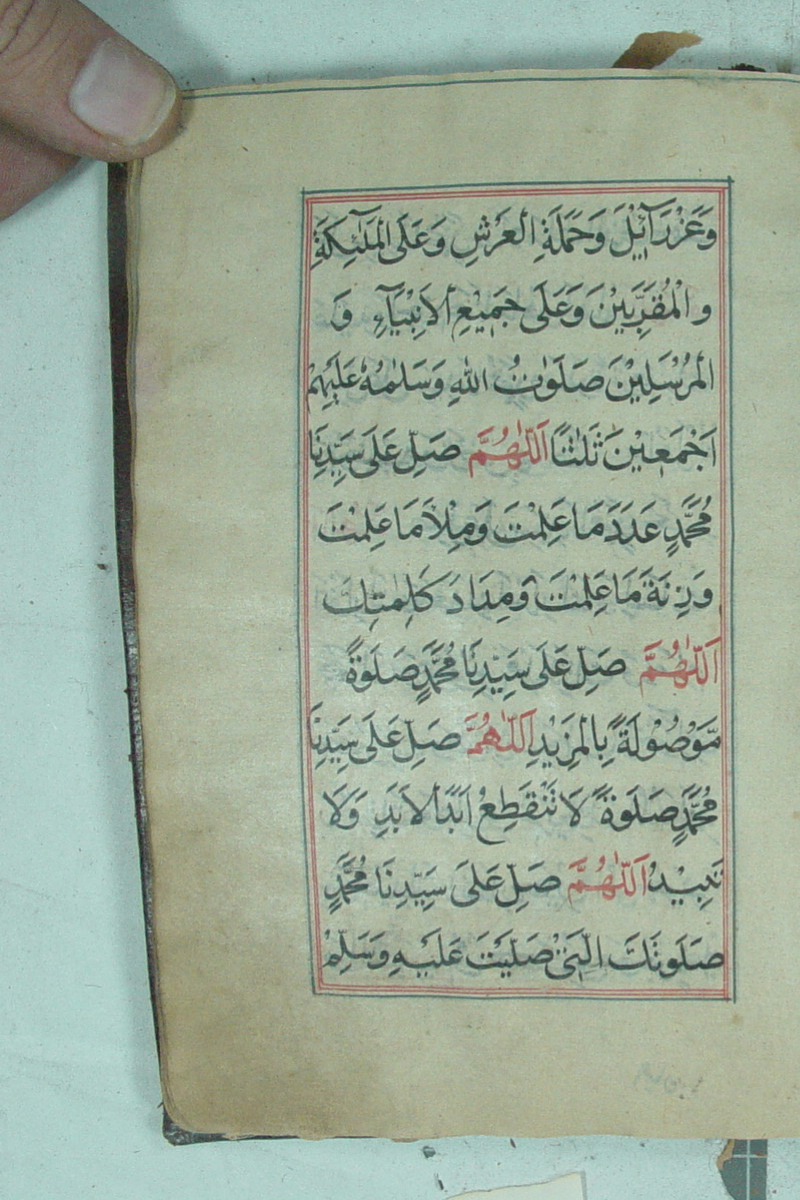 وَعَزْرَآئِيْلَ وَحَمَلَةِ الْعَرْشِ وَعَلَى الْمَلٰٓئِكَةِ
و الْمُقَرَّبِيْنَ وَعَلَى جَمِيْعِ الْاَنْبِيَآءِ وَ
الْمُرْسَلِيْنَ صَلَوٰتُ اللّٰهِ وَسَلٰمُهُ عَلَيْهِمْ
اَجْمَعِيْنَ ثَلٰثًا اَللّٰهُمَّ صَلِّ عَلَى سَيِّدِنَا
مُحَمَّدٍ عَدَدَ مَا عَلِمْتَ وَمِلْأَ مَا عَلِمْتَ
وَزِنَةَ مَا عَلِمْتَ وَمِدَادَ كَلِمٰتِكَ
اَللّٰهُمَّ صَلِّ عَلَى سَيِّدِنَا مُحَمَّدٍ صَلَوةً
مَّوْصُوْلَةً بِالْمَزِيْدِ اَللّٰهُمَّ صَلِّ عَلَى سَيِّدِنَا
مُحَمَّدٍ صَلَوةً لَا تَنْقَطِعُ اَبَدًا الْاَبَدِ وَلَا
تَبِيْدُ اَللّٰهُمَّ صَلِّ عَلَى سَيِّدِنَا مُحَمَّدٍ
صَلَوتَكَ الَّتِيْ صَلَّيْتَ عَلَيْهِ وَسَلِّمْ